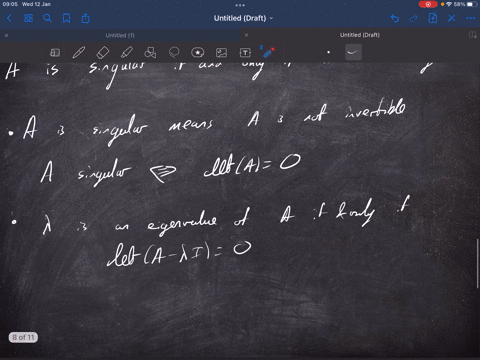 09:05 Wed 12 Jan
58%
Untitled (Draft)
Untitled (1)
Untitled (Draft)
A is singular if and only if
• A is singular means A is not invertible
A singular ⇔ det(A) = 0
• λ is an eigenvalue of A if & only if
det(A - λI) = 0
8 of 11